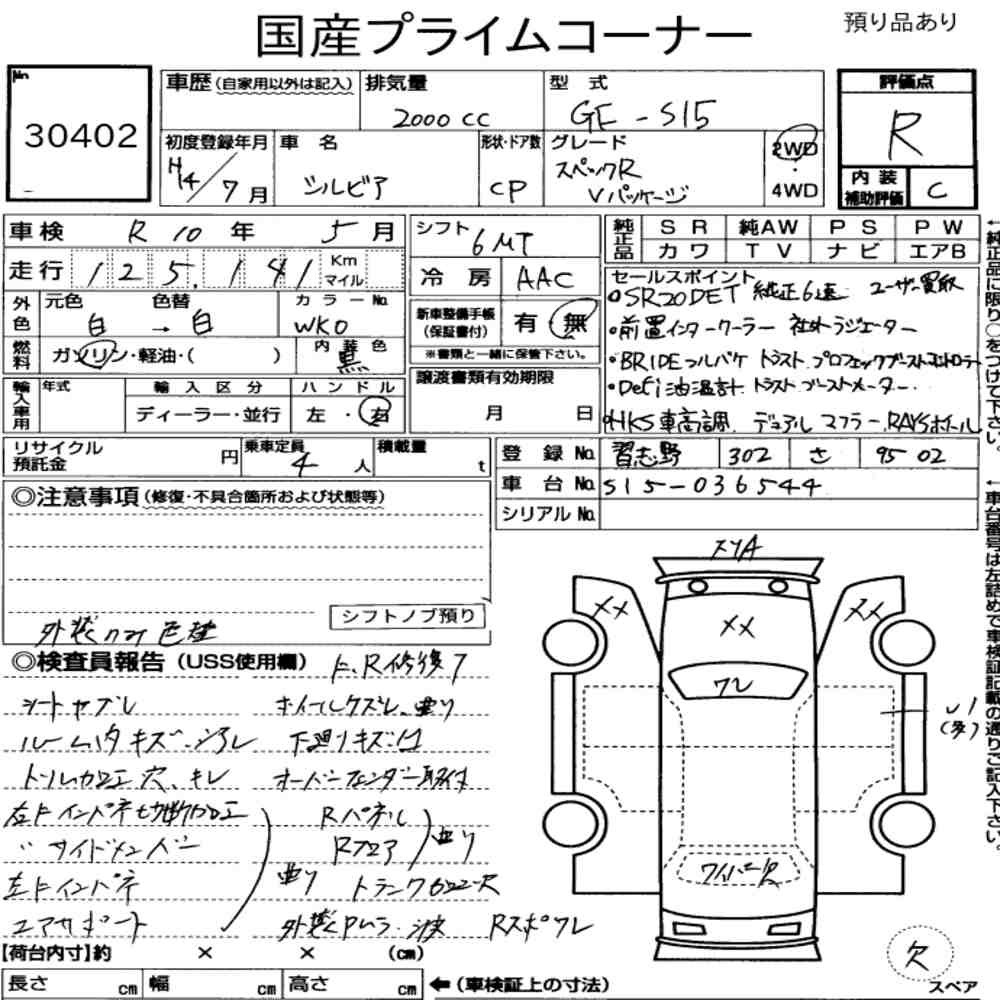 国産プライムコーナー
預り品あり
No.
30402
車歴(自家用以外は記入)
排気量
2000 CC
型 式
GF - S15
評価点
R
初度登録年月
H14/7月
車 名
シルビア
形状・ドア数
CP
グレード
スペックR
Vパッケージ
2WD
・
4WD
内 装
補助評価
C
車 検 R 10 年 5 月
走行 125,141 Km マイル
シフト
6MT
冷 房 AAC
純正品
S R 純AW P S P W
カ ワ T V ナ ビ エアB
外色
元色 色替
白 → 白
カラーNo.
WK0
燃料
ガソリン・軽油・( )
内 装 色
黒
新車整備手帳
(保証書付)
有 無
※書類と一緒に保管下さい。
セールスポイント
○SR20DET 純正6速 ユーザー買取
・前置インタークーラー 社外ラジエーター
・BRIDEフルバケ トラスト プロフェックブーストコントローラー
・Defi油温計 トラスト ブーストメーター
・HKS車高調 デュアル マフラー RAYSホイール
輸入車用
年式
輸 入 区 分
ディーラー・並行
ハ ン ド ル
左 ・ 右
譲渡書類有効期限
月 日
リサイクル
預託金
円
乗車定員
4 人
積載量
t
登 録 No. 習志野 302 さ 95 02
車 台 No. S15-036544
シリアル No.
←純正品に限り○をつけて下さい。
←車台番号は左詰めで車検証記載の通りご記入下さい。
◎注意事項(修復・不具合箇所および状態等)
シフトノブ預り
外装 色種
◎検査員報告(USS使用欄) F、R修復ク
シートヤブレ ホイールクズレ、曲り
ルーム内キズ・ヨゴレ 下廻りキズ・凹
ドリル加工穴、キレ オーバーフェンダー取付
左FインパネC切断加工 Rパネル
〃サイドメンバー Rフロア 曲り
左Fインパネ 曲り トランク加工穴
コアサポート 外装Pムラ・波 Rスポワレ
XYA
XX
XX
XX
ワレ
U1
(多)
ワイパー欠
欠
スペア
【荷台内寸】約 × × (cm)
長さ cm 幅 cm 高さ cm ←(車検証上の寸法)